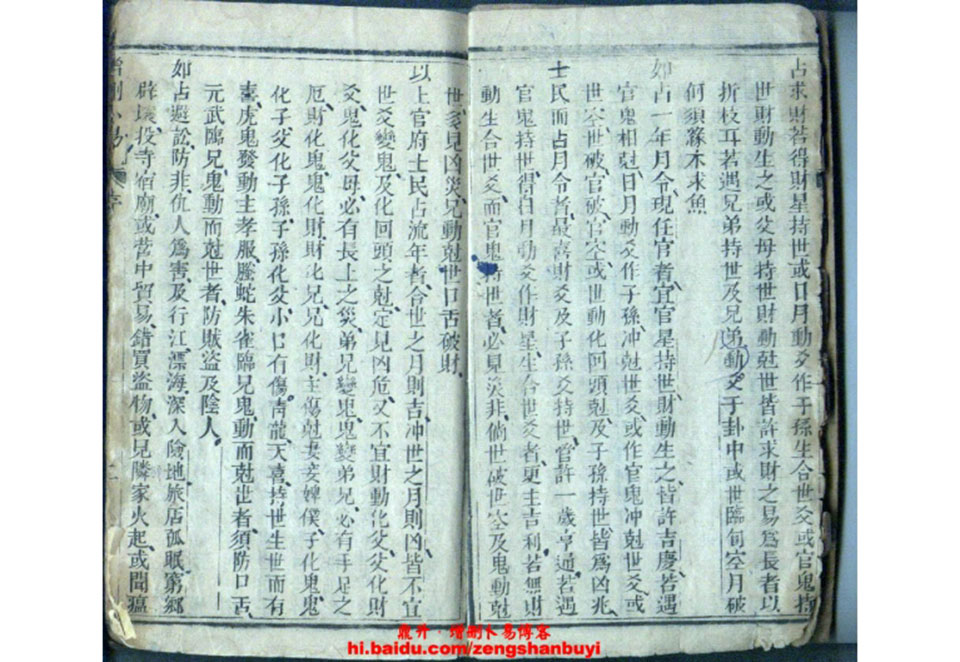 占求財若得財星持世或日月動爻作子孫生合世爻或官鬼持
世財動生之或父母持世財動尅世皆許求財之易爲長者以
折枝耳若遇兄弟持世及兄弟動爻于卦中或世臨旬空月破
何須緣木求魚
如占一年月令現任官者宜官星持世財動生之皆許吉慶若遇
官鬼相尅日月動爻作子孫冲尅世爻或作官鬼冲尅世爻或
世空世破官破官空或世動化回頭尅及子孫持世皆爲凶兆
士民而占月令者最喜財爻及子孫爻持世管許一歲亨通若遇
官鬼持世得日月動爻作財星生合世爻者更主吉利若無財
動生合世爻而官鬼持世者必見災非倘世破世空及鬼動尅
世多見凶災兄動尅世口舌破財
以上官府士民占流年者合世之月則吉冲世之月則凶皆不宜
世爻變鬼及化回頭之尅定見凶危又不宜財動化父父化財
爻鬼化父母必有長上之災弟兄變鬼鬼變弟兄必有手足之
厄財化鬼鬼化財財化兄兄化財主傷尅妻妾婢僕子化鬼鬼
化子父化子孫子孫化父小口有傷靑龍天喜持世生世而有
喜虎鬼發動主孝服螣蛇朱雀臨兄鬼動而尅世者須防口舌
元武臨兄鬼動而尅世者防賊盜及陰人
如占避訟防非仇人爲害及行江漂海深入險地旅店孤眠窮鄉
辟壤投寺宿廟或者中貿易錯買盜物或見隣家火起或聞瘟
增刪卜易
序
龍升·增刪卜易博客
hi.baidu.com/zengshanbuyi